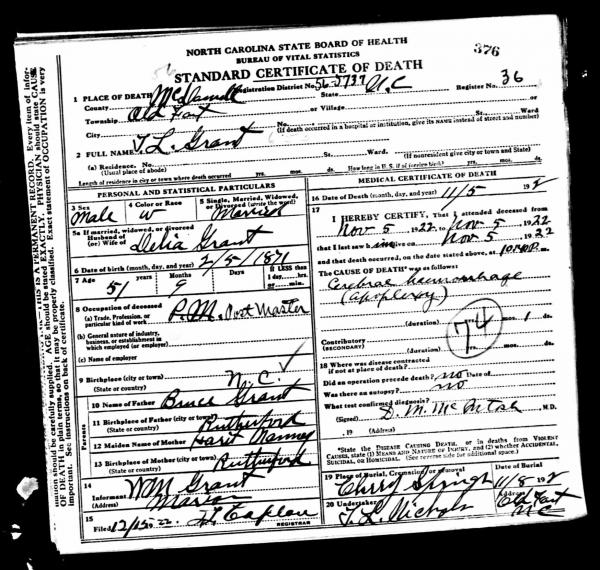 NORTH CAROLINA STATE BOARD OF HEALTH
BUREAU OF VITAL STATISTICS
STANDARD CERTIFICATE OF DEATH
376
1 PLACE OF DEATH Registration District No. 56-5737 Register No. 36
County McDowell State N.C
Township Old Fort or Village or
City No. St. Ward
(If death occurred in a hospital or institution, give its NAME instead of street and number)
2 FULL NAME T. L. Grant
(a) Residence. No. St. Ward.
(Usual place of abode) (If nonresident give city or town and State)
Length of residence in city or town where death occurred yrs. mos. ds. How long in U. S. if of foreign birth? yrs. mos. ds.
PERSONAL AND STATISTICAL PARTICULARS
3 Sex 4 Color or Race 5 Single, Married, Widowed, or Divorced (write the word)
Male W Married
5a If married, widowed, or divorced
Husband of
(or) Wife of Delia Grant
6 Date of birth (month, day, and year) 2/5/1871
7 Age Years Months Days If LESS than 1 day, hrs. or min.
51 9
8 Occupation of deceased
(a) Trade, Profession, or particular kind of work P.M. Post Master
(b) General nature of industry, business, or establishment in which employed (or employer)
(c) Name of employer
9 Birthplace (city or town) N.C.
(State or country)
Parents
10 Name of Father Bruce Grant
11 Birthplace of Father (city or town) Rutherford
(State or country)
12 Maiden Name of Mother
13 Birthplace of Mother (city or town) Rutherford
(State or country)
14
Informant WM Grant
(Address) Marion
15
Filed 12/15 22
REGISTRAR
MEDICAL CERTIFICATE OF DEATH
16 Date of Death (month, day, and year) 11/5 192
17
I HEREBY CERTIFY, That I attended deceased from
Nov 5, 1922, to Nov 5, 1922
that I last saw him alive on Nov 5, 1922
and that death occurred, on the date stated above, at m.
The CAUSE OF DEATH* was as follows:
Cerebral haemorrhage
(apoplexy)
74
(duration) yrs. mos. 1 ds.
Contributory
(SECONDARY)
(duration) yrs. mos. ds.
18 Where was disease contracted
if not at place of death?
Did an operation precede death? no Date of
Was there an autopsy? no
What test confirmed diagnosis?
(Signed) D. M. McIntosh M.D.
, 19 (Address)
*State the DISEASE CAUSING DEATH, or in deaths from VIOLENT CAUSES, state (1) MEANS AND NATURE OF INJURY, and (2) whether ACCIDENTAL, SUICIDAL, or HOMICIDAL. (See reverse side for additional space.)
19 Place of Burial, Cremation, or Removal Date of Burial
11/8 192
20 Undertaker Address
Old Fort
NC